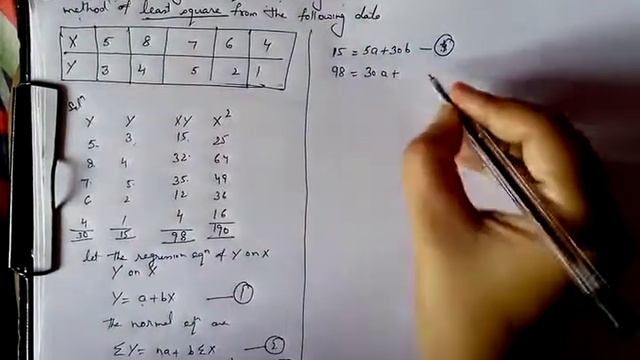 method of least square from the following data
X 5 8 7 6 4
Y 3 4 5 2 1
Solⁿ
X Y XY X²
5 3 15 25
8 4 32 64
7 5 35 49
6 2 12 36
4 1 4 16
30 15 98 190
let the regression eqⁿ of Y on X
Y on X
Y = a + bX — 1
the normal eqⁿ are
ΣY = na + bΣX — 2
15 = 5a + 30b —
98 = 30a +